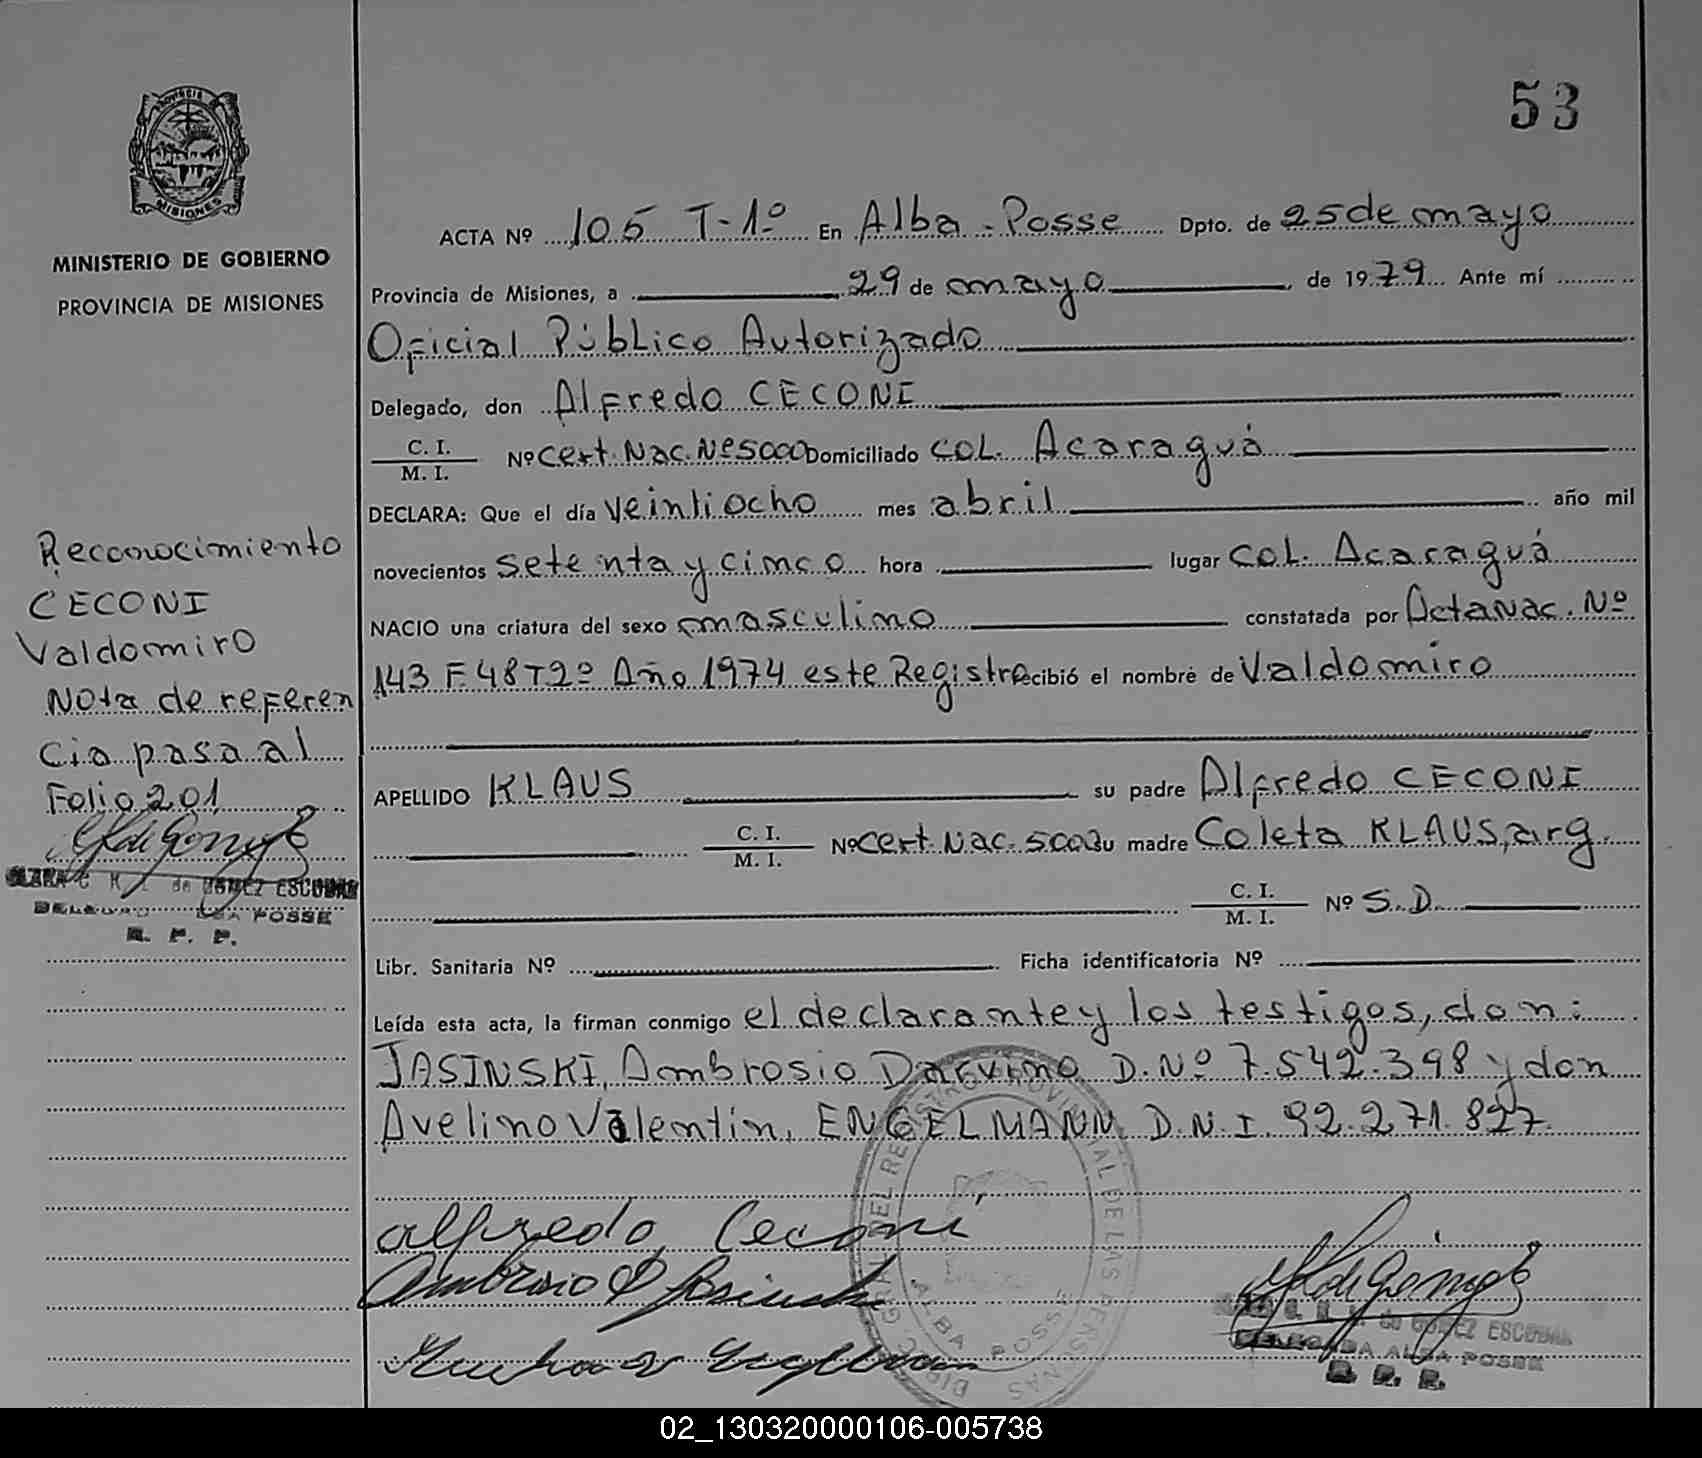 53
PROVINCIA
MISIONES
MINISTERIO DE GOBIERNO
PROVINCIA DE MISIONES
ACTA Nº 105 T-1º En Alba-Posse Dpto. de 25 de mayo
Provincia de Misiones, a 29 de mayo de 1979 Ante mí
Oficial Público Autorizado
Delegado, don Alfredo CECONI
C. I.
M. I.
Nº Cert. Nac. Nº 5000 Domiciliado COL. Acaraguá
DECLARA: Que el día veintiocho mes abril año mil
novecientos setenta y cinco hora lugar COL. Acaraguá
NACIO una criatura del sexo masculino constatada por Acta Nac. Nº
143 F 48 T 2º Año 1974 este Registro recibió el nombre de Valdomiro
APELLIDO KLAUS su padre Alfredo CECONI
C. I.
M. I.
Nº Cert. Nac. 5000 su madre Coleta KLAUS, arg.
C. I.
M. I.
Nº S.D.
Libr. Sanitaria Nº Ficha identificatoria Nº
Leída esta acta, la firman conmigo el declarante y los testigos, don:
JASINSKI, Ambrosio Darvino D. Nº 7.542.398 y don
Avelino Valentin, ENGELMANN D.N.I. 92.271.827
Reconocimiento
CECONI
Valdomiro
Nota de referen
cia pasa al
Folio 201
de GOMEZ ESCOBAR
ALBA POSSE
R. P. P.
alfredo Ceconi
Ambrosio D Jasinski
de GOMEZ ESCOBAR
DELEGADA ALBA POSSE
R. P. P.
DEL REGISTRO PROVINCIAL DE LAS PERSONAS
ALBA POSSE
02_130320000106-005738